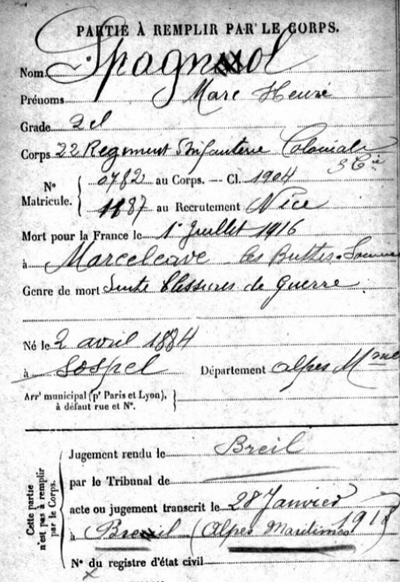 PARTIE À REMPLIR PAR LE CORPS.
Nom Spagnol
Prénoms Marc Henri
Grade 2cl
Corps 22 Régiment Infanterie Coloniale
3 Cie
N° Matricule. { 0782 au Corps. — Cl. 1904
1187 au Recrutement Nice
Mort pour la France le 1er Juillet 1916
à Marcelcave les Buttes Somme
Genre de mort Suite blessures de Guerre
Né le 2 avril 1884
à Sospel Département Alpes Mmes
Arrt municipal (pr Paris et Lyon), à défaut rue et N°. }
Cette partie n'est pas à remplir par le Corps.
Jugement rendu le Breil
par le Tribunal de
acte ou jugement transcrit le 28 Janvier 1918
à Breil (Alpes Maritimes)
N° du registre d'état civil